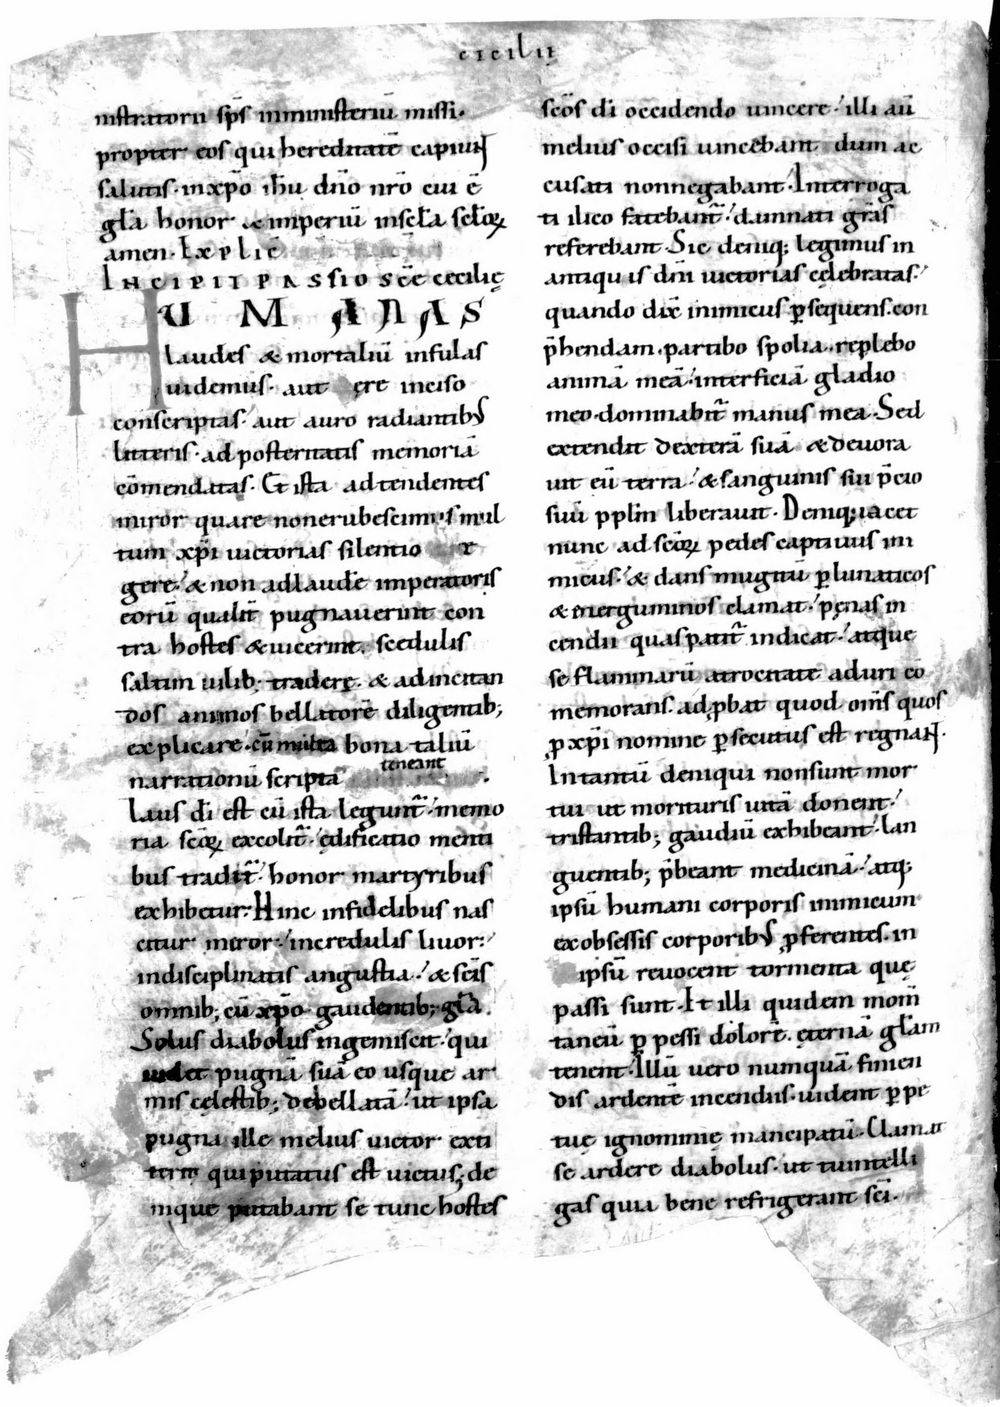 cecilię
nistratorii sp̄s inministeriū missi.
propter eos qui hereditatē capiunt
salutis. inxp̄o ih̄u dn̄o nr̄o cui ē
gl̄a honor & imperiū insc̄la sc̄loꝝ
amen. Explic̄
Incipit passio sc̄e cecilię
HUMANAS
laudes & mortaliū insulas
uidemus. aut ęre inciso
conscriptas. aut auro radiantibus
litteris. ad posteritatis memoriā
cōmendatas. Et ista adtendentes
miror quare nonerubescimus mul
tum xp̄i uictorias silentio
gere. & non adlaudē imperatoris
eorū qualit̄ pugnauerint con
tra hostes & uicerint. scedulis
saltim uilib; tradere. & adincitan
dos animos bellatorē diligentib;
explicare. cū multa bona taliū
teneant
narrationū scripta
Laus dī est cū ista legunt̄. memo
ria sc̄oꝝ excolit̄. ędificatio menti
bus tradit̄. honor martyribus
exhibetur. Hinc infidelibus nas
citur meror. incredulis liuor.
indisciplinatis angustia. & sc̄is
omnib; cū xp̄o gaudentib; gl̄a.
Solus diabolus ingemiscit. qui
uidet pugnā suā eo usque ar
mis cęlestib; debellatā. ut ipsa
pugna ille melius uictor exti
terit qui putatus est uictus; de
nique putabant se tunc hostes
sc̄os dī occidendo uincere. illi aū
melius occisi uincebant. dum ac
cusati nonnegabant. Interroga
ti ilico fatebant̄. damnati grās
referebant. Sic deniq; legimus in
antiquis dn̄i uictorias cęlebratas.
quando dix̄ inimicus ꝑsequens con
p̄hendam. partibo spolia. replebo
animā meā. interficiā gladio
meo. dominabit̄ manus mea. Sed
extendit dexterā suā & deuora
uit eū terra. & sanguinis sui p̄cio
suū pplm̄ liberauit. Deniq; iacet
nunc ad sc̄oꝝ pedes captiuus ini
micus. & dans mugitū ꝑ lunaticos
& inerguminos clamat. pęnas in
cendii quas patit̄ indicat. atque
se flammarū atrocitate aduri cō
memorans. adꝓbat quod om̄s quos
ꝓ xp̄i nomine ꝑsecutus est regnant.
Intantū deniqui nonsunt mor
tui ut morituris uitā donent.
tristantib; gaudiū exhibeant. lan
guentib; p̄beant medicinā. atq;
ipsū humani corporis inimicum
exobsessis corporibus ꝓferentes. in
ipsū reuocent tormenta quę
passi sunt. Et illi quidem mom̄
taneū ꝑpessi dolorē. ęternā gl̄am
tenent. Illū uero numquā finien
dis ardentē incendiis. uident ꝑpe
tuę ignominię mancipatū. Clamat
se ardere diabolus. ut tu intelli
gas quia bene refrigerant sc̄i.